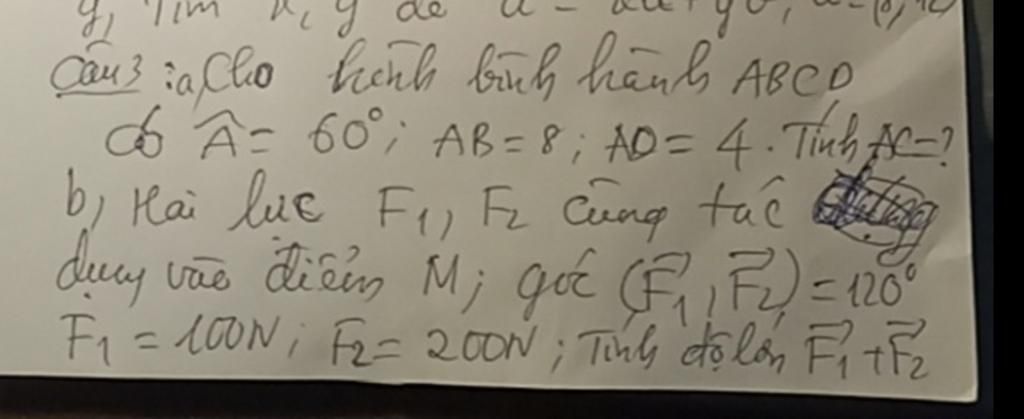 y, Tìm x, y để
Câu 3 : a, Cho hình bình hành ABCD
có Â = 60°; AB = 8; AD = 4. Tính AC = ?
b, Hai lực F₁, F₂ cùng tác
dụng vào điểm M; góc (F₁⃗, F₂⃗) = 120°
F₁ = 100N; F₂ = 200N; Tính độ lớn F₁⃗ + F₂⃗